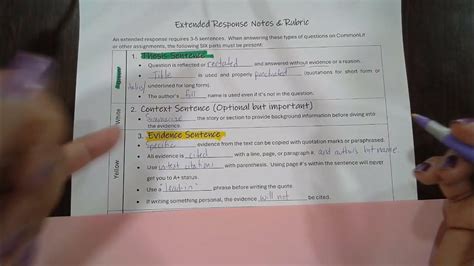 Extended Response Notes & Rubric
An extended response requires 3-5 sentences. When answering these types of questions on CommonLit
or other assignments, the following SIX parts must be present:
1. Thesis Sentence
Question is reflected or restated and answered without evidence or a reason.
Title is used and properly punctuated (quotations for short form or
underlined for long form).
The author's full name is used even if it's not in the question.
White
2. Context Sentence (Optional but important)
Summarize the story or section to provide background information before diving into
the evidence.
Yellow
3. Evidence Sentence
Specific evidence from the text can be copied with quotation marks or paraphrased.
All evidence is cited with a line, page, or paragraph # and authors last name
Use intext citations with parenthesis. Using page #'s within the sentence will never
get you to A+ status.
Use a "lead in" phrase before writing the quote.
If writing something personal, the evidence will not be cited.